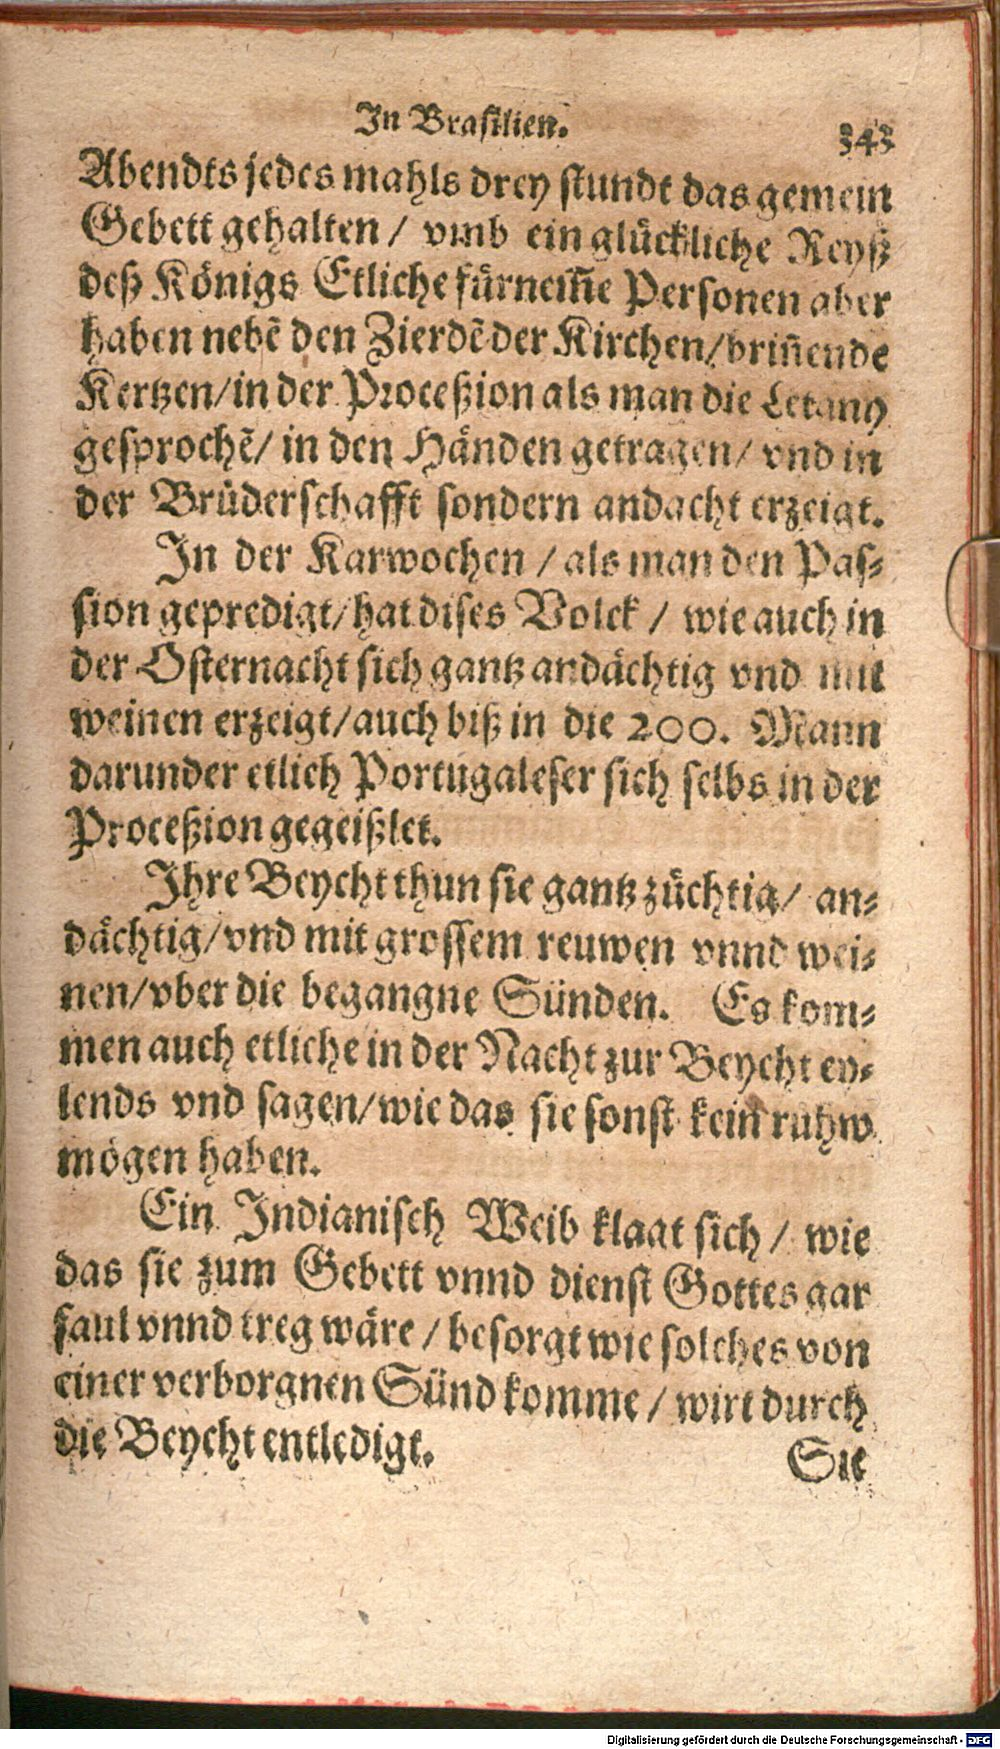 In Brasilien.
343
Abendts jedes mahls drey stundt das gemein
Gebett gehalten / vmb ein glückliche Reyß
deß Königs Etliche fürnem̃e Personen aber
haben nebẽ den Zierdẽ der Kirchen/brin̄ende
Kertzen/in der Proceßion als man die Letany
gesprochẽ/ in den Händen getragen/ vnd in
der Brüderschafft sondern andacht erzeigt.
In der Karwochen / als man den Pas-
sion gepredigt/hat dises Volck / wie auch in
der Osternacht sich gantz andächtig vnd mit
weinen erzeigt/auch biß in die 200. Mann
darunder etlich Portugaleser sich selbs in der
Proceßion gegeißlet.
Ihre Beycht thun sie gantz züchtig/ an-
dächtig/vnd mit grossem reuwen vnnd wei-
nen/vber die begangne Sünden. Es kom-
men auch etliche in der Nacht zur Beycht ey-
lends vnd sagen/wie das sie sonst kein ruhw
mögen haben.
Ein Indianisch Weib klagt sich / wie
das sie zum Gebett vnnd dienst Gottes gar
faul vnnd treg wäre / besorgt wie solches von
einer verborgnen Sünd komme / wirt durch
die Beycht entledigt.
Sie
Digitalisierung gefördert durch die Deutsche Forschungsgemeinschaft - DFG